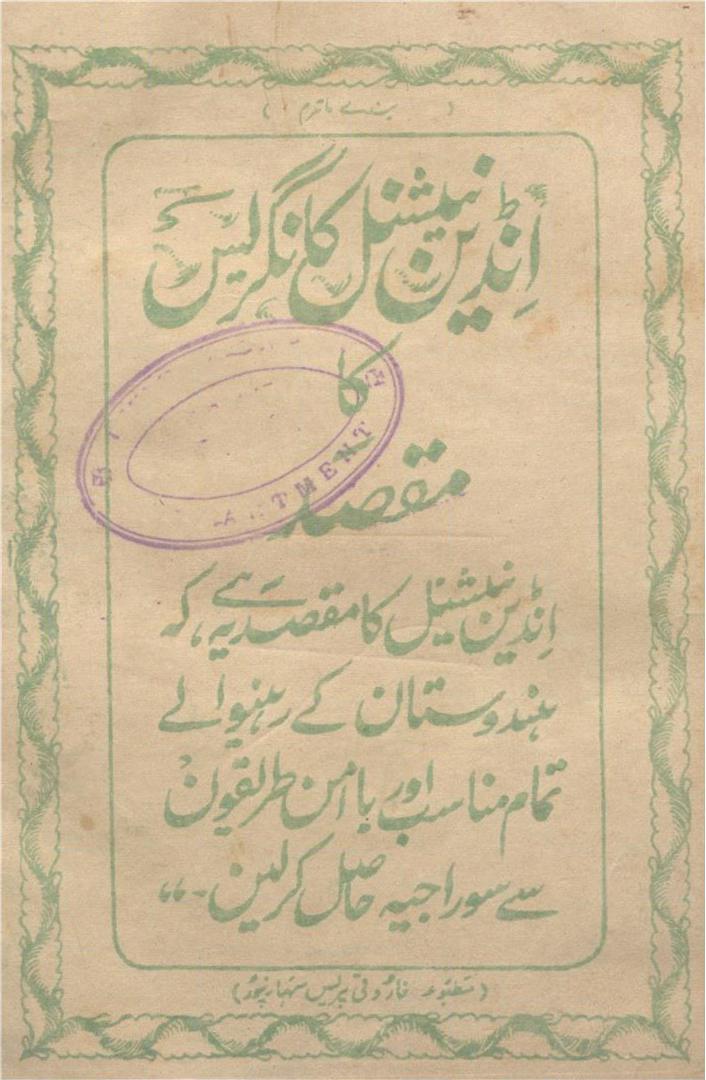 ( بندے ماترم )
اِنڈین نیشنل کانگریس
کا
مقصد
اِنڈین نیشنیل کا مقصد یہ ہے، کہ
ہندوستان کے رہنیوالے
تمام مناسب اور باامن طریقوں
سے سوراجیہ حاصل کرلین۔،،
(مطبوعہ فاروقی پریس سہارنپور)
TMENT